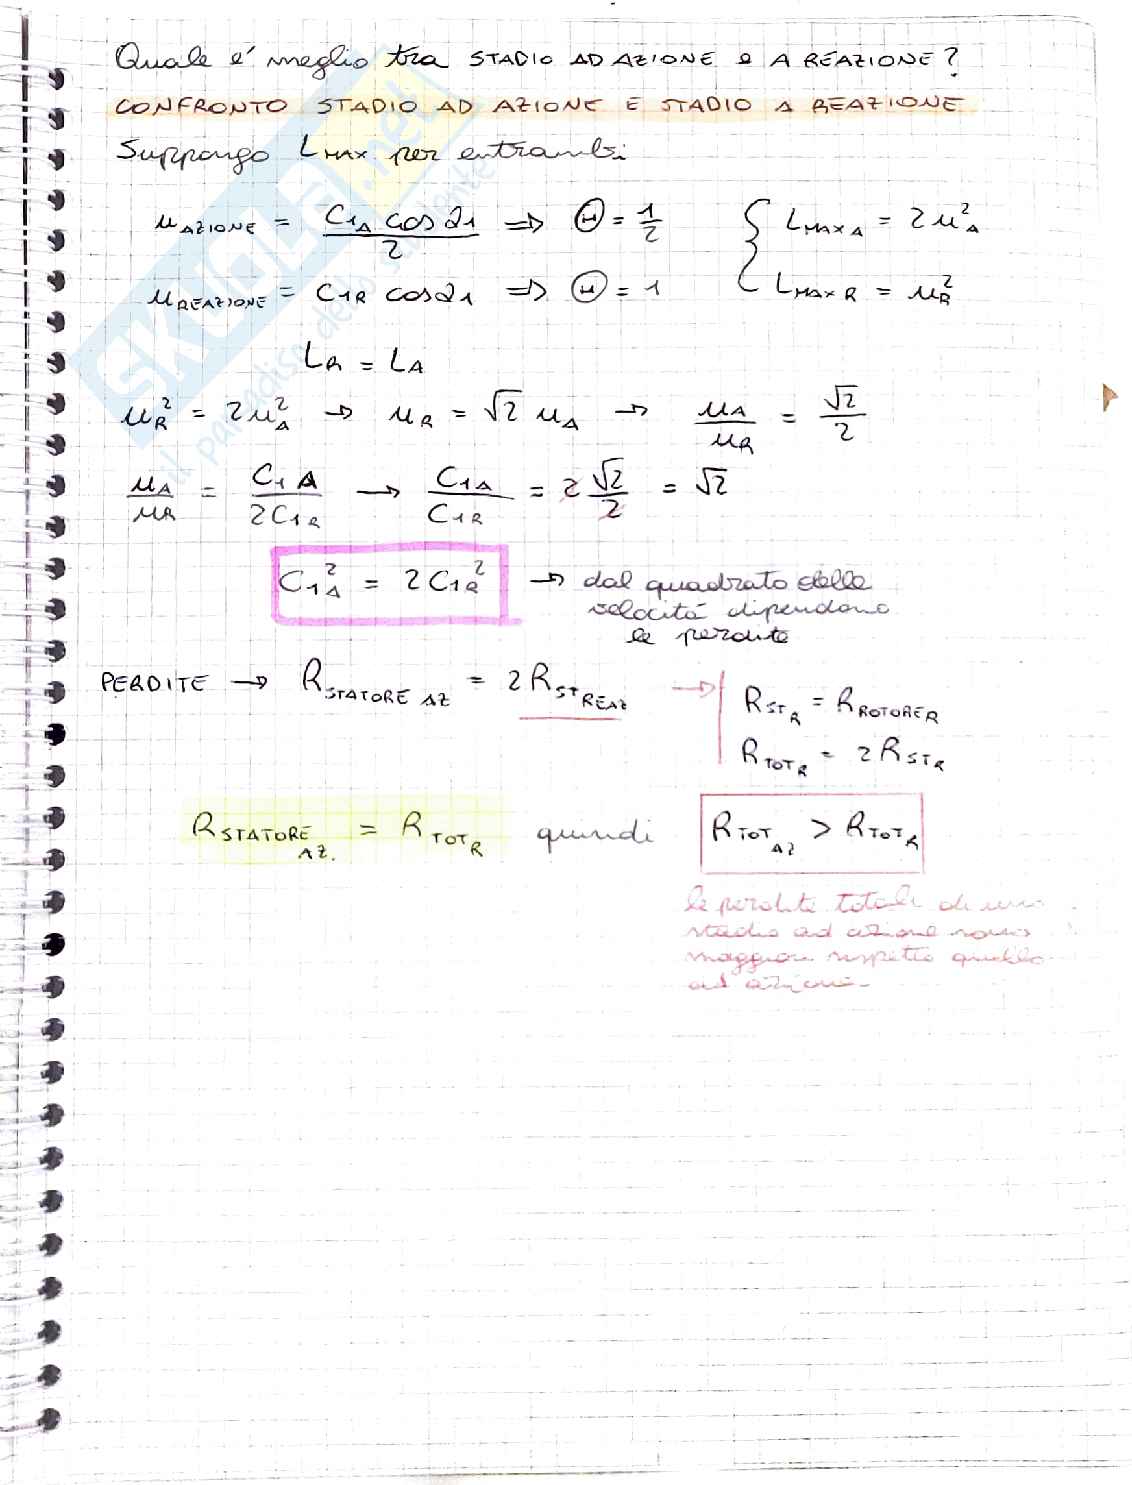 Quale e' meglio tra STADIO AD AZIONE e A REAZIONE?
CONFRONTO STADIO AD AZIONE E STADIO A REAZIONE
Suppongo L MAX per entrambi
u AZIONE = C1A cos α1 / 2 ⇒ Θ = 1/2 { L MAX A = 2u²A
u REAZIONE = C1R cos α1 ⇒ Θ = 1 L MAX R = u²R
LR = LA
uR² = 2u²A → uR = √2 uA → uA/uR = √2/2
uA/uR = C1A/2C1R → C1A/C1R = 2 √2/2 = √2
C1A² = 2C1R² → dal quadrato delle
velocità dipendono
le perdite
PERDITE → R STATORE AZ = 2R ST REAZ → R ST R = R ROTORE R
R TOT R = 2R ST R
R STATORE AZ. = R TOT R quindi R TOT AZ > R TOT R
le perdite totali di uno
stadio ad azione sono
maggiori rispetto quello
ad azione.
SKUOLA.net
il paradiso dello studente